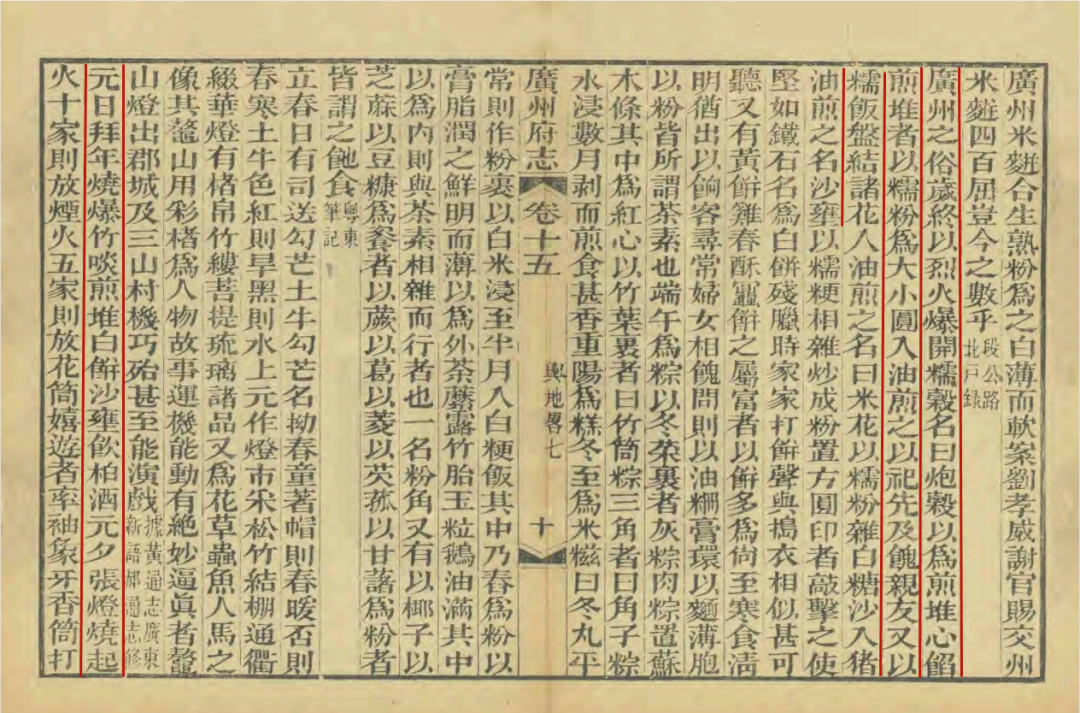 廣州米䴵合生熟粉爲之白薄而軟案劉孝威謝官賜交州
米䴵四百屈豈今之數乎段公路北戶錄
廣州之俗歲終以烈火爆開糯穀名曰炮穀以爲煎堆心餡
煎堆者以糯粉爲大小圓入油煎之以祀先及餽親友又以
糯飯盤結諸花入油煎之名曰米花以糯粉雜白糖沙入猪
油煎之名沙壅以糯粳相雜炒成粉置方圓印者敲擊之使
堅如鐵石名爲白餅殘臘時家家打餅聲與搗衣相似甚可
聽又有黃餅雞春酥𥁕餅之屬富者以餅多爲尙至寒食淸
明猶出以餉客尋常婦女相餽問則以油𥻋膏環以麵薄胞
以粉皆所謂茶素也端午爲粽以冬葉裹者灰粽肉粽置蘇
木條其中爲紅心以竹葉裹者曰竹筒粽三角者曰角子粽
水浸數月剥而煎食甚香重陽爲糕冬至爲米糍曰冬丸平
廣州府志 卷十五 輿地畧七 十
常則作粉裹以白米浸至半月入白粳飯其中乃舂爲粉以
膏脂潤之鮮明而薄以爲外荼蘼露竹胎玉粒鵝油滿其中
以爲內則與茶素相雜而行者也一名粉角又有以椰子以
芝蔴以豆糠爲餐者以蕨以葛以菱以茨菰以甘藷爲粉者
皆謂之蚀食粵東筆記
立春日有司送勾芒土牛勾芒名拗春童著帽則春暖否則
春寒土牛色紅則旱黑則水上元作燈市采松竹結棚通衢
綴華燈有楮帛竹縷菩提琉璃諸品又爲花草蟲魚人馬之
像其鼇山用彩楮爲人物故事運機能動有絶妙逼眞者鼇
山燈出郡城及三山村機巧殆甚至能演戲據黃通志廣東新語郝通志修
元日拜年燒爆竹啖煎堆白餅沙壅飮柏酒元夕張燈燒起
火十家則放煙火五家則放花筒嬉遊者率袖象牙香筒打